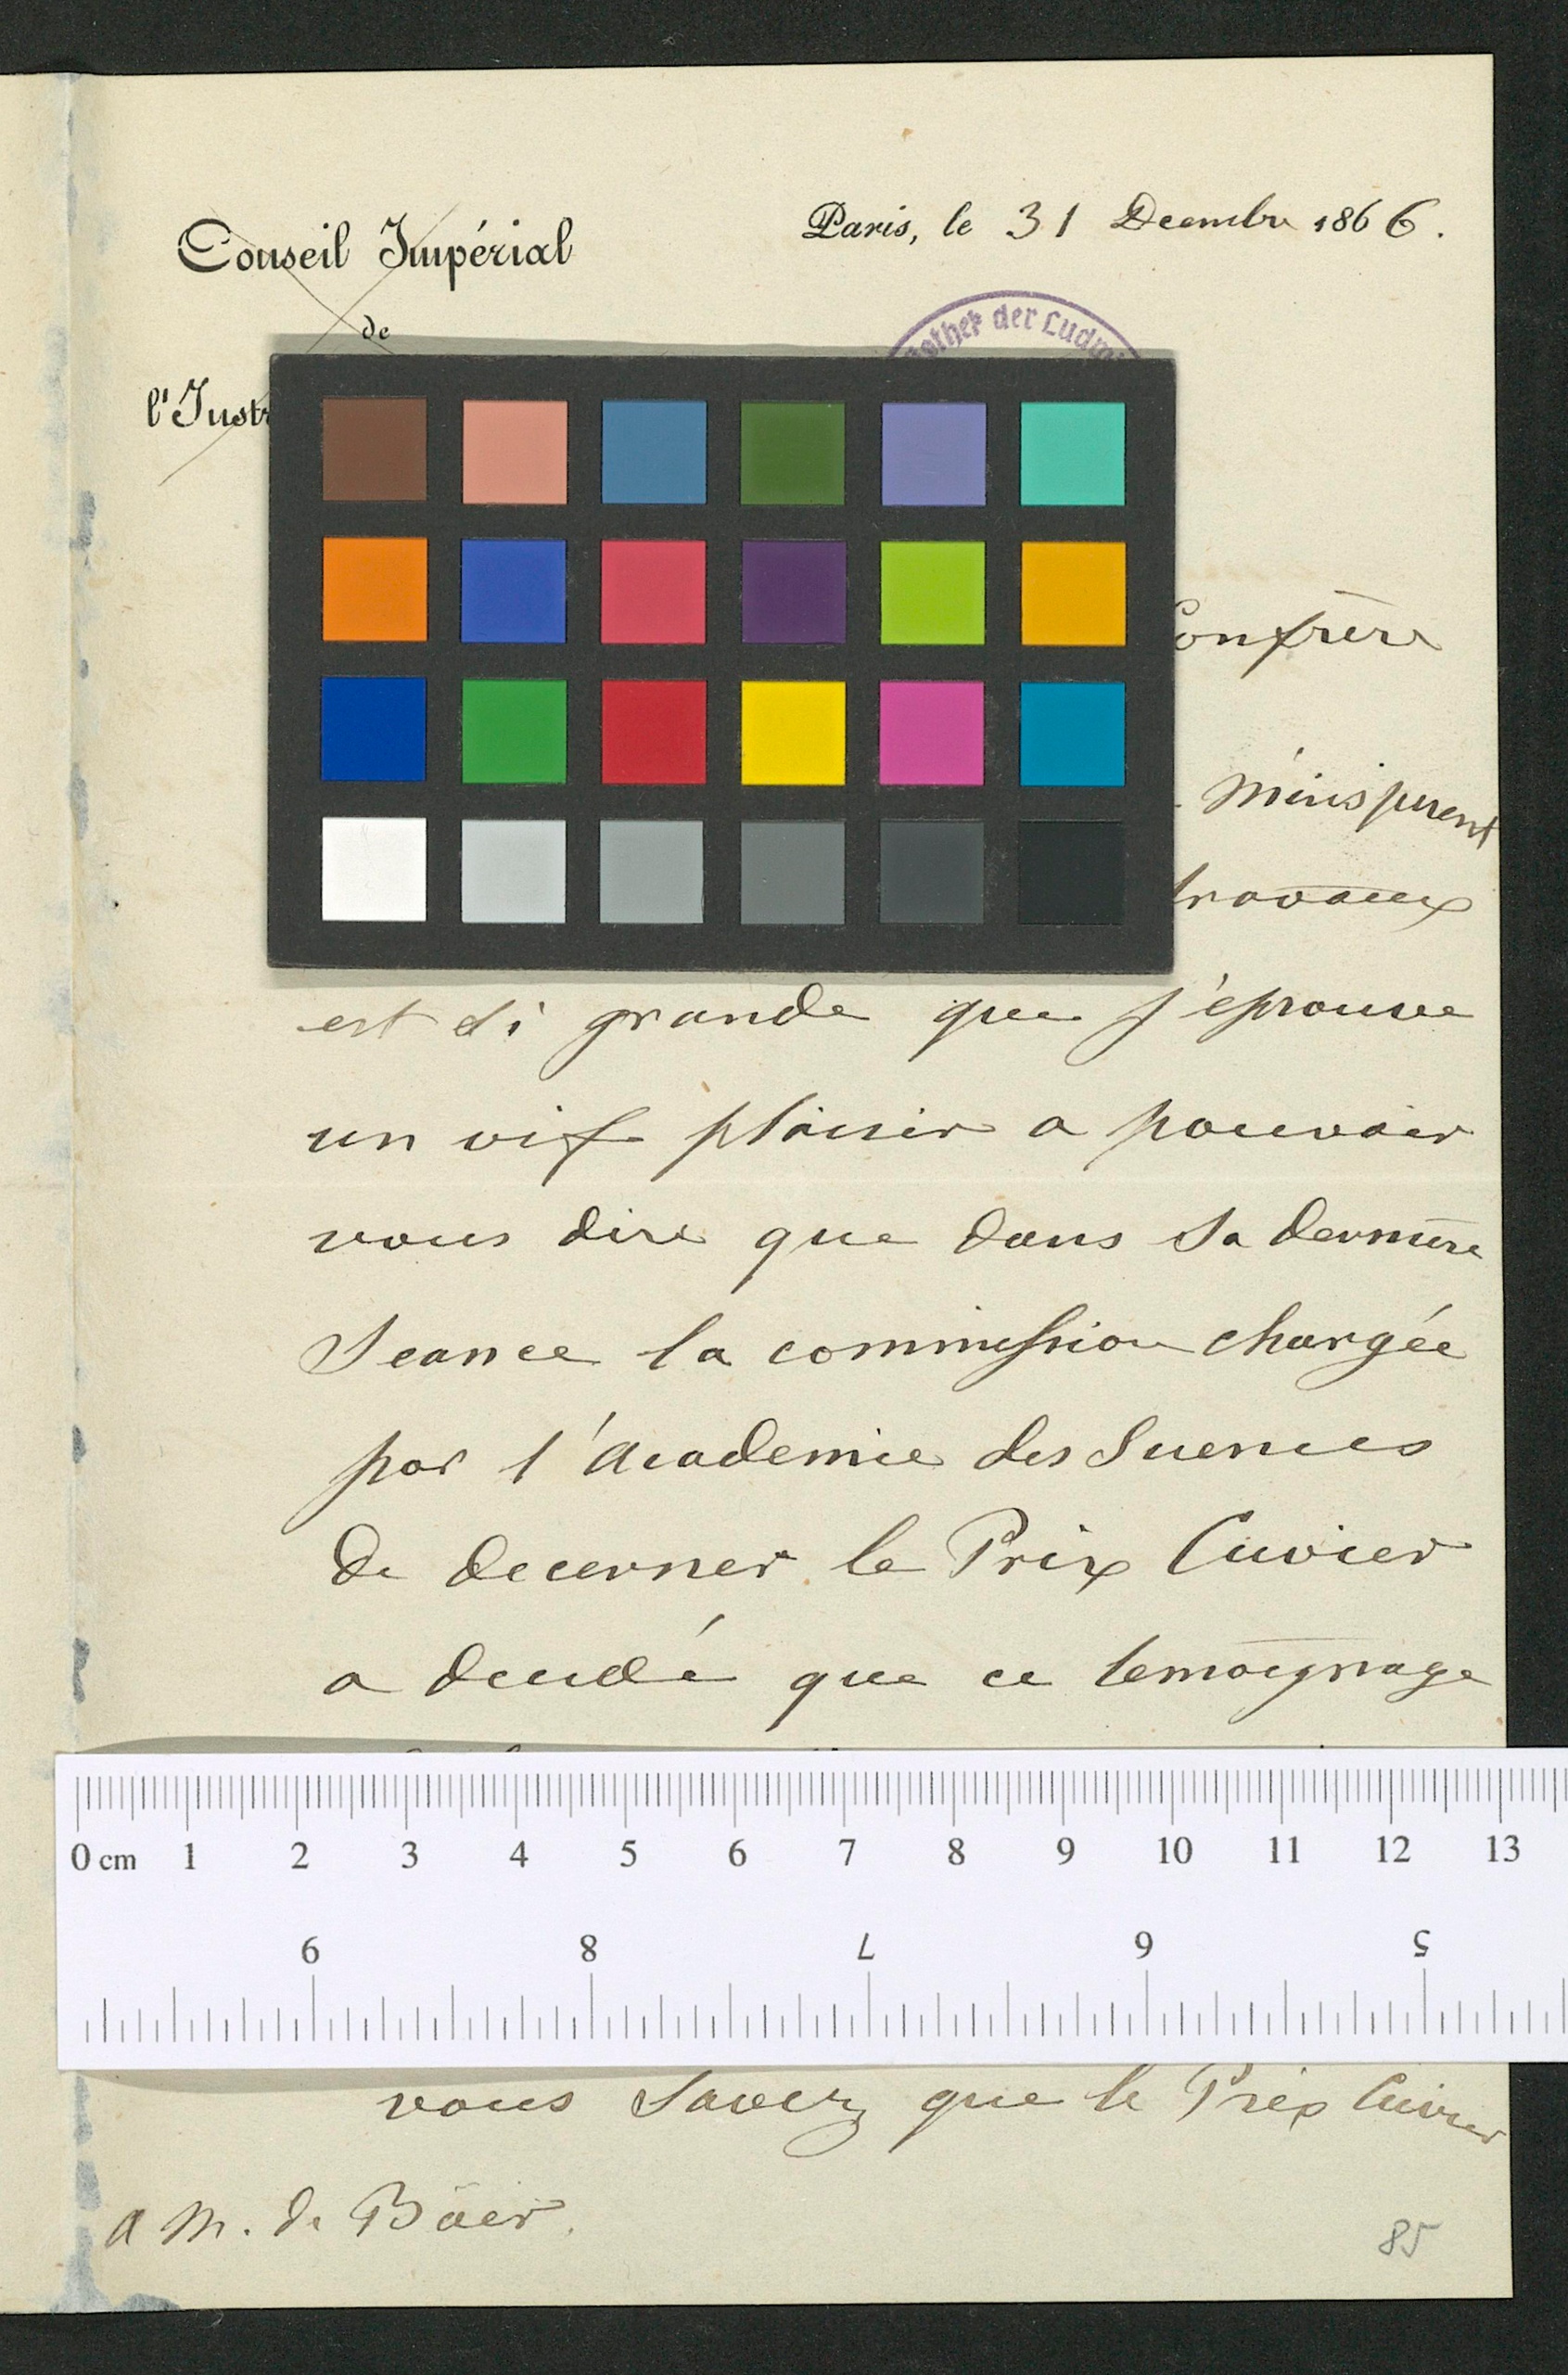 Paris, le 31 Decembre 1866.
Conseil Impérial
de
l'Instr
othek der Ludwi
Confrère
m'inspirent
travaux
est si grande que j'éprouve
un vif plaisir a pouvoir
vous dire que dans sa dernière
Seance la commission chargée
par l'Academie des Sciences
de decerner le Prix Cuvier
a decidé que ce temoignage
0 cm 1 2 3 4 5 6 7 8 9 10 11 12 13
9 8 7 6 5
vous savez que le Prix Cuvier
a M. de Bäer.
85